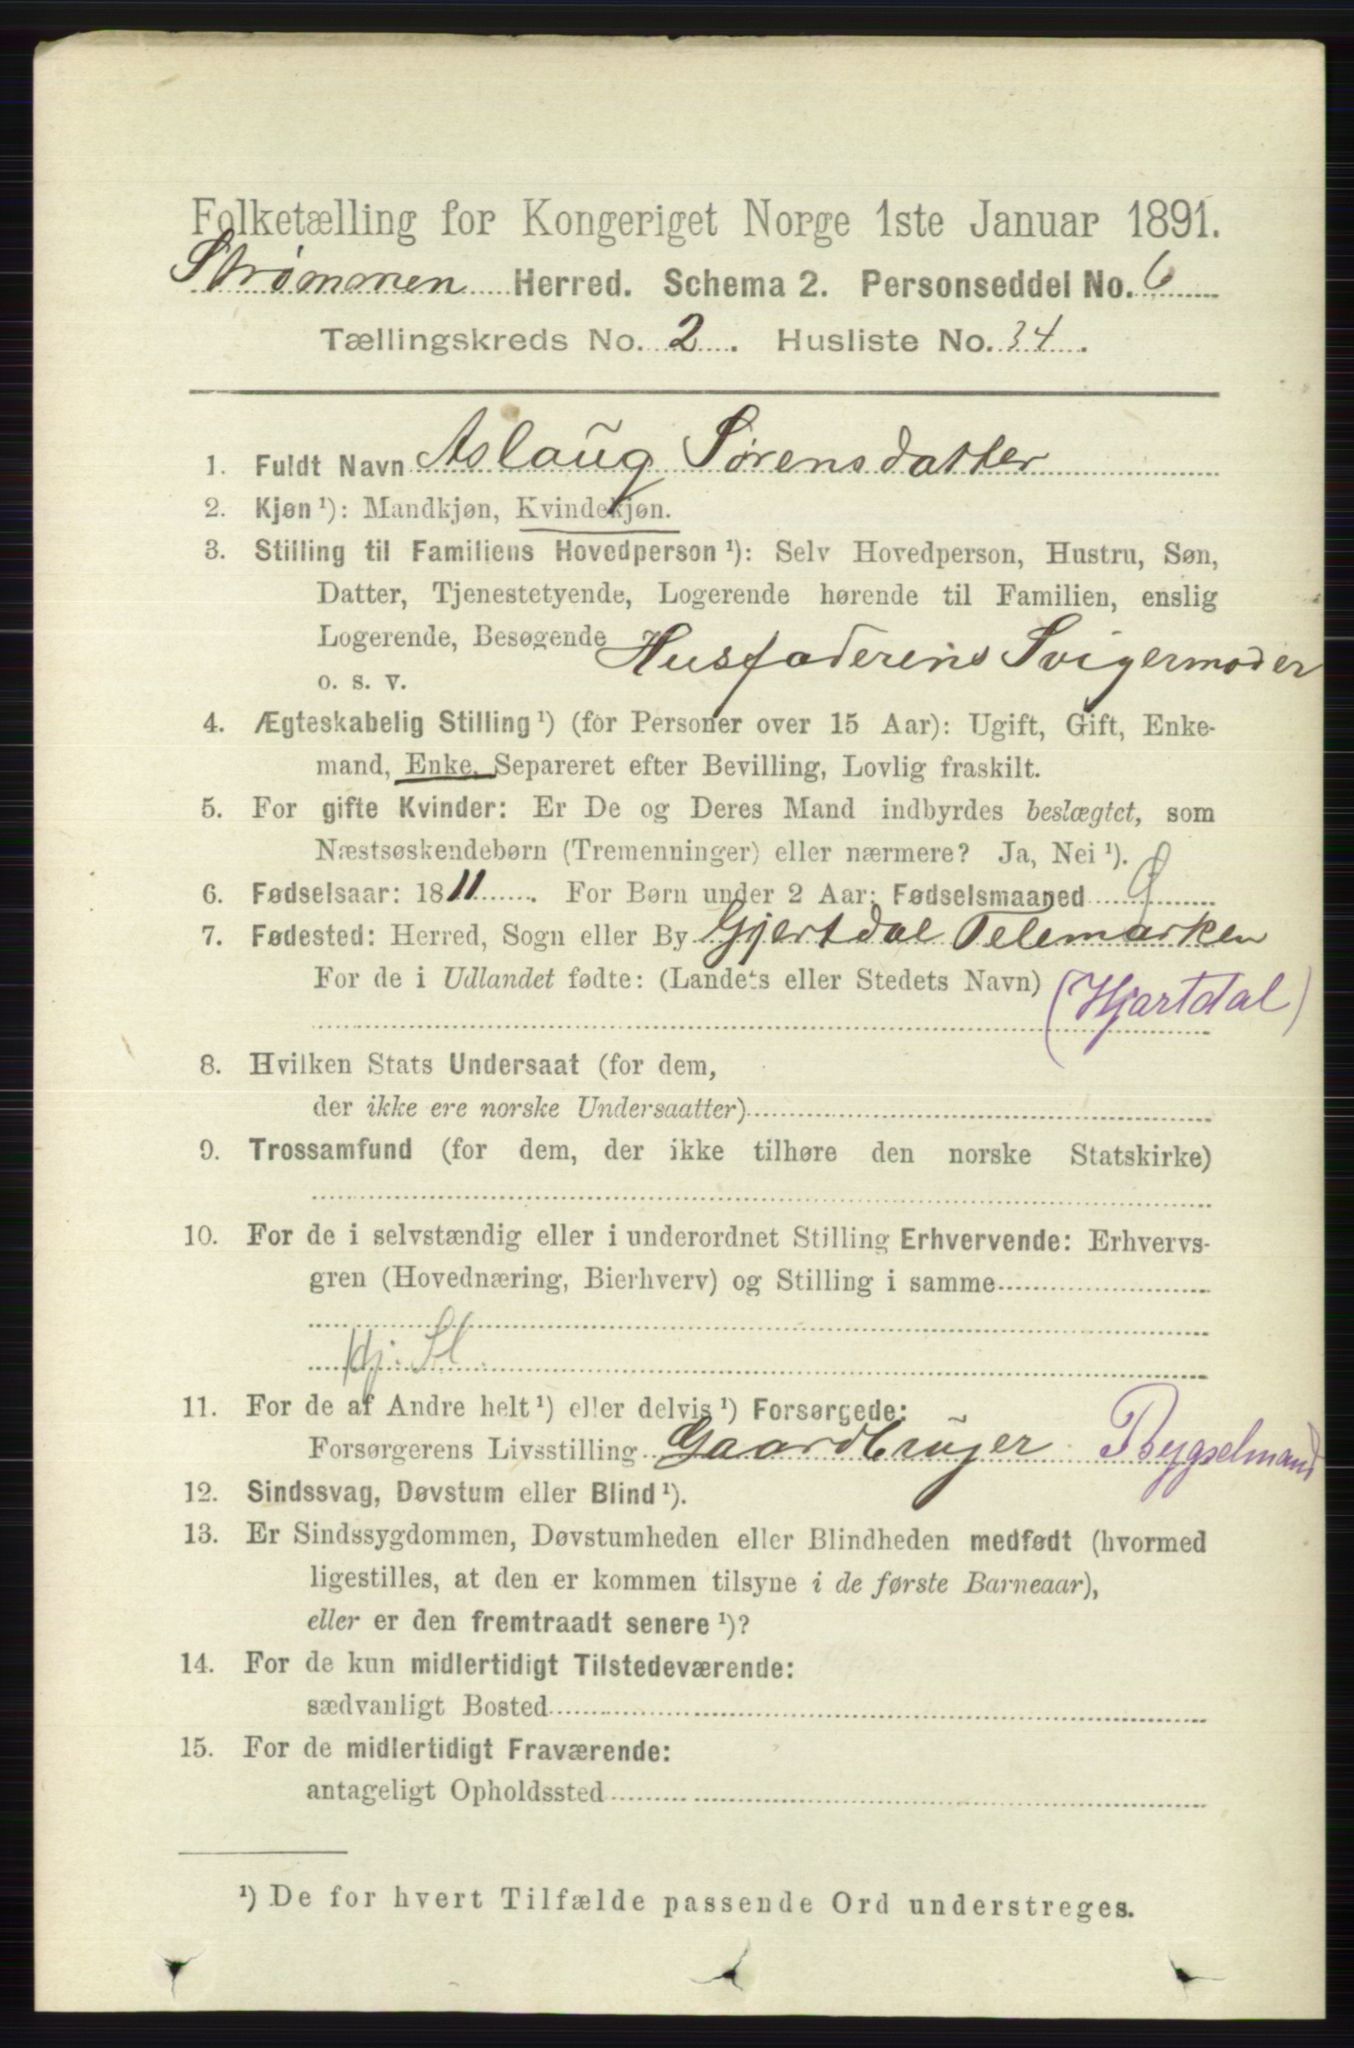 Folketælling for Kongeriget Norge 1ste Januar 1891.
Strømmen Herred. Schema 2. Personseddel No. 6
Tællingskreds No. 2. Husliste No. 34.
1. Fuldt Navn Aslaug Sørensdatter
2. Kjøn ¹): Mandkjøn, Kvindekjøn.
3. Stilling til Familiens Hovedperson ¹): Selv Hovedperson, Hustru, Søn,
Datter, Tjenestetyende, Logerende hørende til Familien, enslig
Logerende, Besøgende Husfaderens Svigermoder
o. s. v.
4. Ægteskabelig Stilling ¹) (for Personer over 15 Aar): Ugift, Gift, Enke-
mand, Enke, Separeret efter Bevilling, Lovlig fraskilt.
5. For gifte Kvinder: Er De og Deres Mand indbyrdes beslægtet, som
Næstsøskendebørn (Tremenninger) eller nærmere? Ja, Nei ¹).
6. Fødselsaar: 1811. For Børn under 2 Aar: Fødselsmaaned
7. Fødested: Herred, Sogn eller By Gjertdal Telemarken
For de i Udlandet fødte: (Landets eller Stedets Navn) (Hjartdal)
8. Hvilken Stats Undersaat (for dem,
der ikke ere norske Undersaatter)
9. Trossamfund (for dem, der ikke tilhøre den norske Statskirke)
10. For de i selvstændig eller i underordnet Stilling Erhvervende: Erhvervs-
gren (Hovednæring, Bierhverv) og Stilling i samme
Hj. Sl.
11. For de af Andre helt ¹) eller delvis ¹) Forsørgede:
Forsørgerens Livsstilling Gaardbruger Bygselmand
12. Sindssvag, Døvstum eller Blind ¹).
13. Er Sindssygdommen, Døvstumheden eller Blindheden medfødt (hvormed
ligestilles, at den er kommen tilsyne i de første Barneaar),
eller er den fremtraadt senere ¹)?
14. For de kun midlertidigt Tilstedeværende:
sædvanligt Bosted
15. For de midlertidigt Fraværende:
antageligt Opholdssted
¹) De for hvert Tilfælde passende Ord understreges.